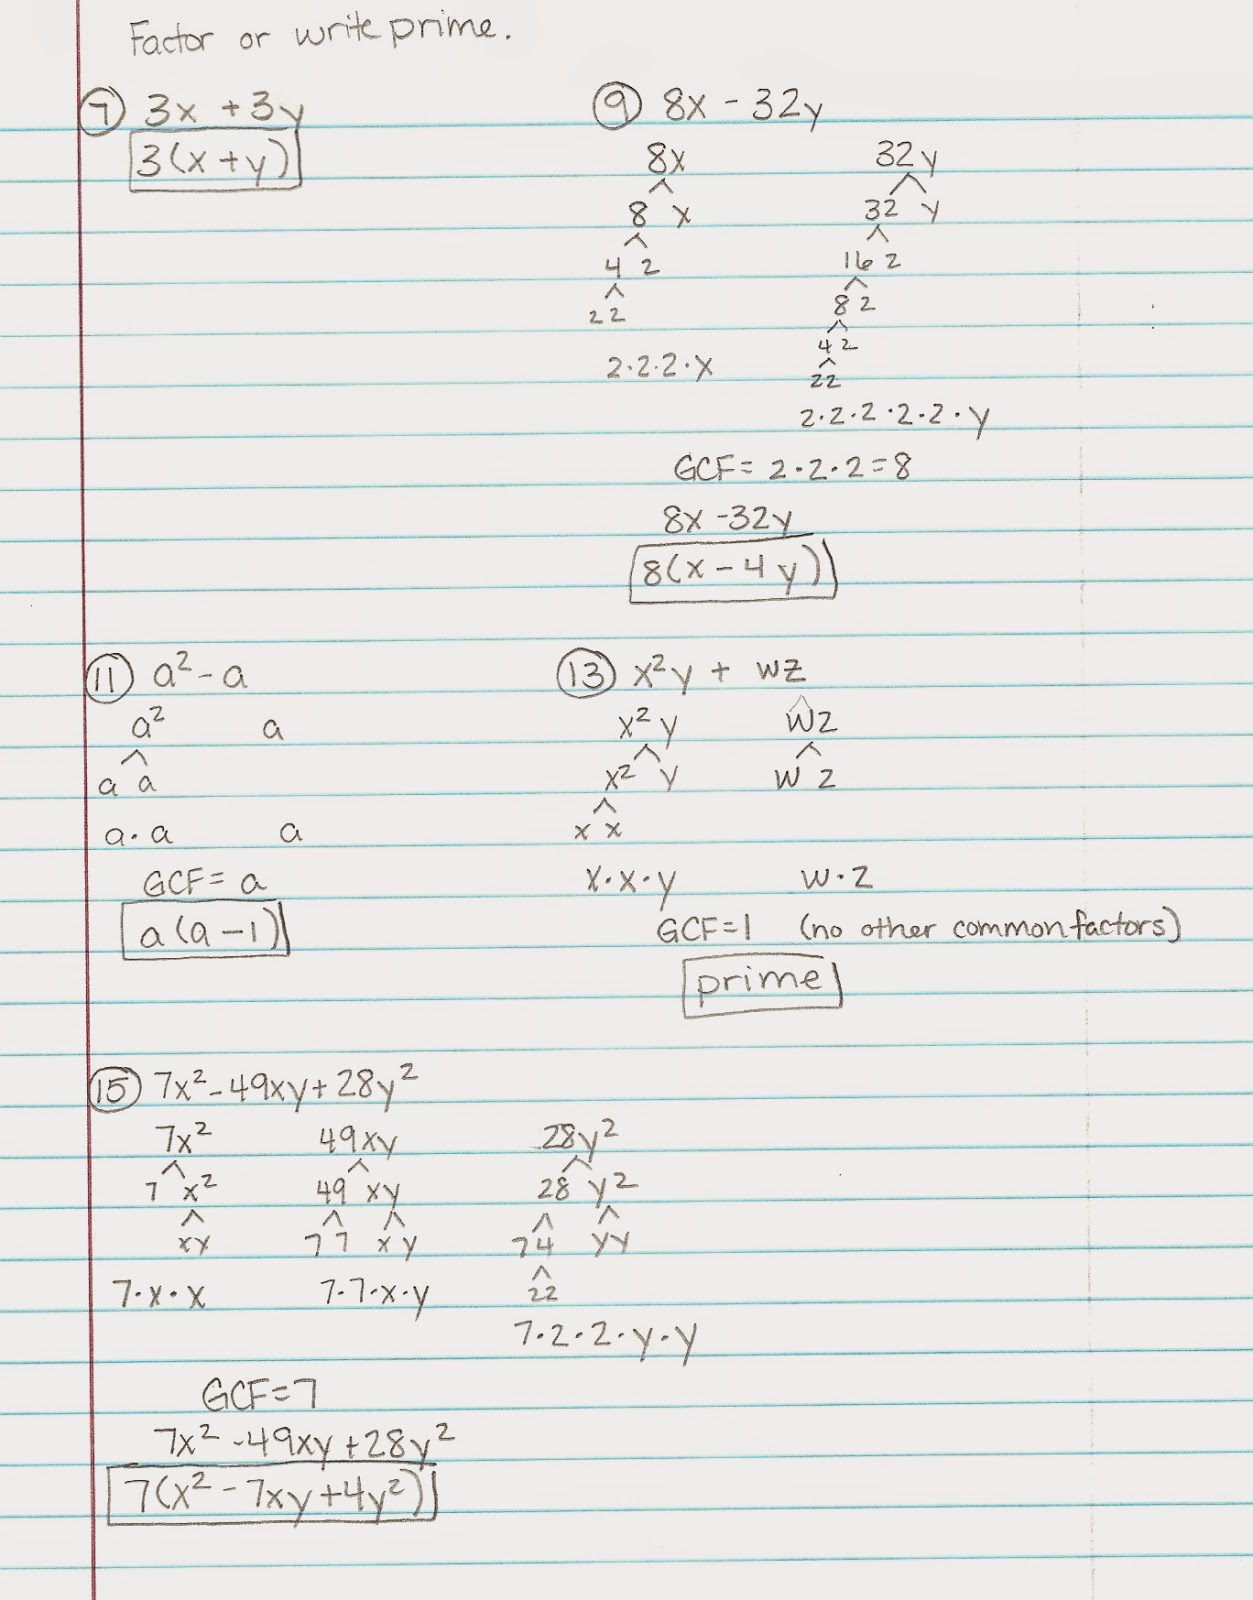 Factor or write prime.
7 3x + 3y
3(x + y)
9 8x - 32y
8x 32y
8 x 32 y
4 2 16 2
2 2 8 2
4 2
2·2·2·x 22
2·2·2·2·2·y
GCF = 2·2·2 = 8
8x - 32y
8(x - 4y)
11 a² - a
a² a
a a
a·a a
GCF = a
a(a - 1)
13 x²y + wz
x²y wz
x² y w z
x x
x·x·y w·z
GCF = 1 (no other common factors)
prime
15 7x² - 49xy + 28y²
7x² 49xy 28y²
7 x² 49 xy 28 y²
xx 77 xy 74 yy
7·x·x 7·7·x·y 22
7·2·2·y·y
GCF = 7
7x² - 49xy + 28y²
7(x² - 7xy + 4y²)